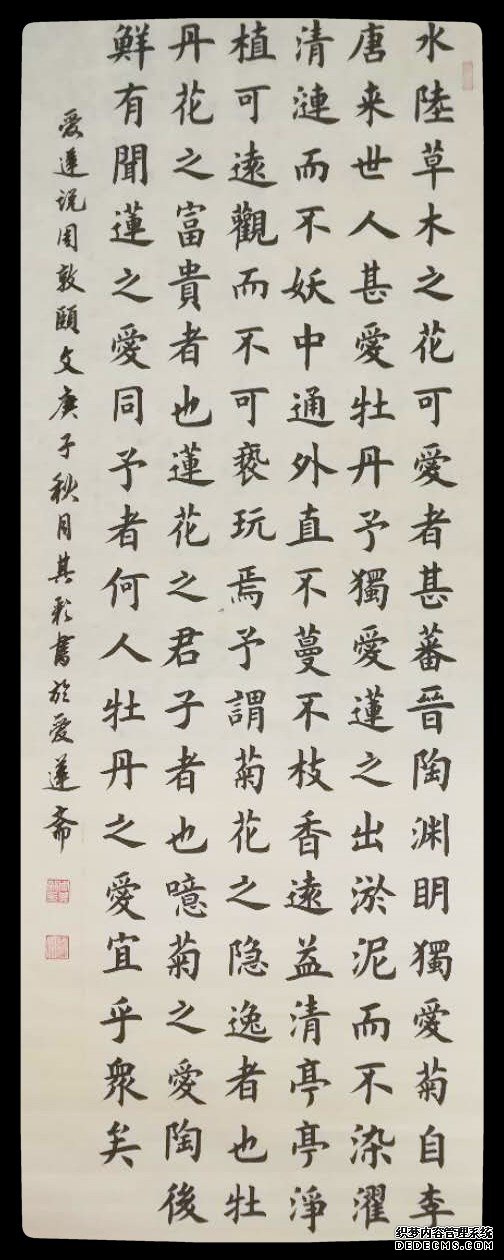 水陸草木之花可愛者甚蕃晉陶渊眀獨愛菊自李
唐来世人甚愛牡丹予獨愛蓮之出淤泥而不染濯
清漣而不妖中通外直不蔓不枝香遠益清亭亭淨
植可遠觀而不可褻玩焉予謂菊花之隐逸者也牡
丹花之富貴者也蓮花之君子者也噫菊之愛陶後
鮮有聞蓮之愛同予者何人牡丹之愛宜乎衆矣
愛蓮説周敦頤文庚子秋月其彩書於愛蓮斋
织梦内容管理系统
DEDECMS.COM